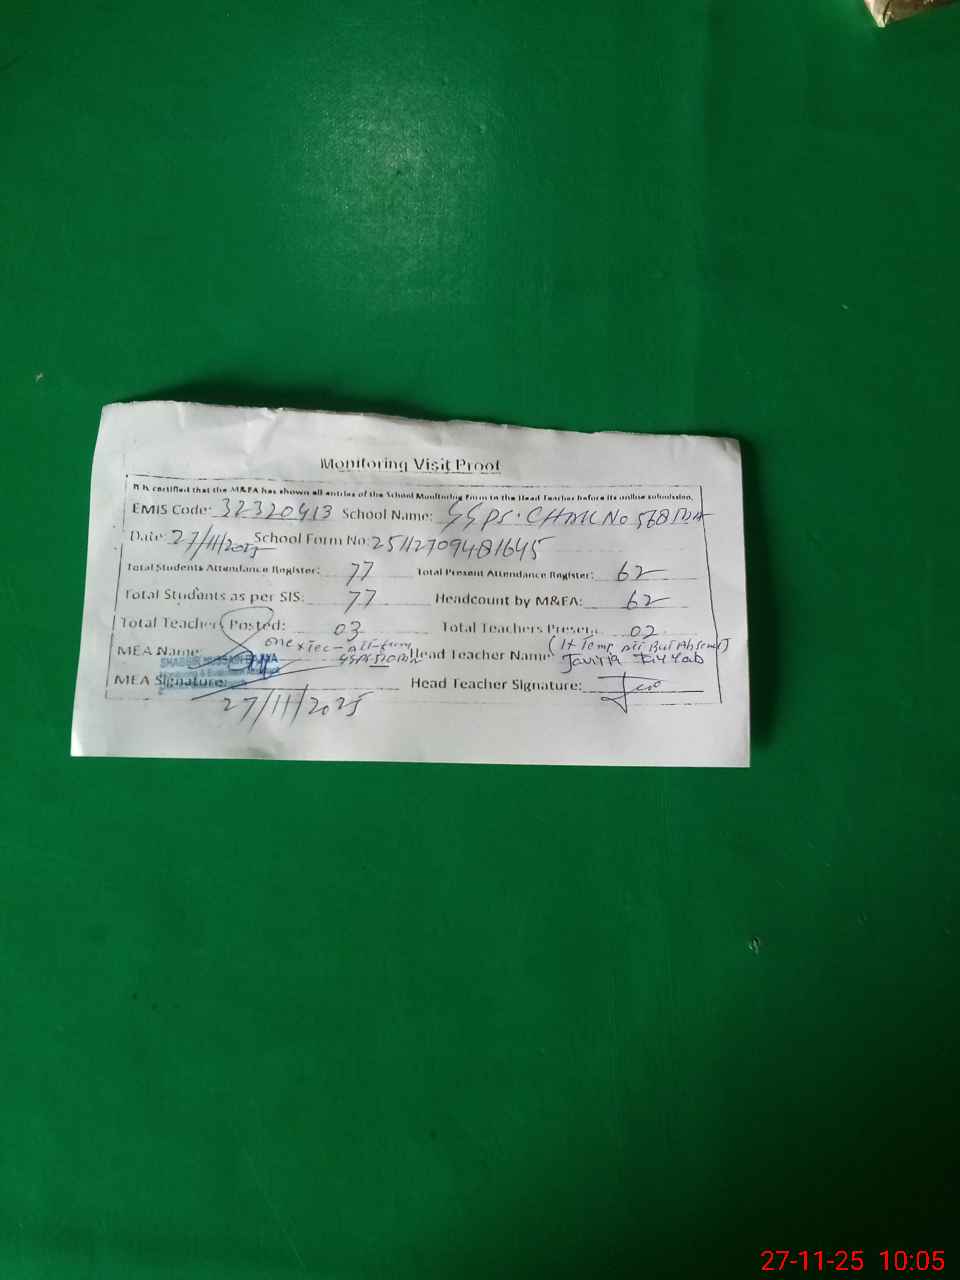 Monitoring Visit Proof
It is certified that the M&EA has shown all entries of the School Monitoring Form to the Head Teacher before its online submission.
EMIS Code: 32320413 School Name: GGPS. CHAK No 568 TDA
Date: 27/11/2025 School Form No: 25112709481645
Total Students Attendance Register: 77 Total Present Attendance Register: 62
Total Students as per SIS: 77 Headcount by M&EA: 62
Total Teachers Posted: 03 Total Teachers Present: 02
one (1t Temp But Absent)
MEA Name: SHABBIR HUSSAIN GGPS 510 TDA Head Teacher Name: Javiria
MEA Signature: Head Teacher Signature:
27/11/2025
27-11-25 10:05